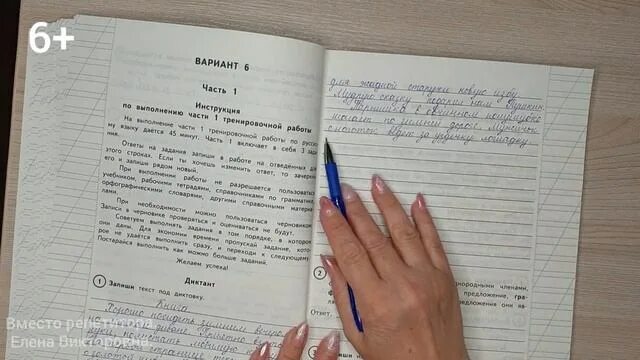 6+
ВАРИАНТ 6
Часть 1
Инструкция
по выполнению части 1 тренировочной работы
На выполнение части 1 тренировочной работы по русско-
му языку даётся 45 минут. Часть 1 включает в себя 3 зада-
ния.
Ответы на задания запиши в работе на отведённых для
этого строках. Если ты хочешь изменить ответ, то зачеркни
его и запиши рядом новый.
При выполнении работы не разрешается пользоваться
учебником, рабочими тетрадями, справочниками по грамматике,
орфографическими словарями, другими справочными матери-
алами.
При необходимости можно пользоваться черновиком.
Записи в черновике проверяться и оцениваться не будут.
Советуем выполнять задания в том порядке, в котором
они даны. Для экономии времени пропускай задание, кото-
рое не удаётся выполнить сразу, и переходи к следующему.
Постарайся выполнить как можно больше заданий.
Желаем успеха!
Диктант
1 Запиши текст под диктовку.
Книга
Хорошо посидеть зимним
любимую
для жадной старухи новую избу.
Мудрую сказку подарил нам Пушкин.
в овчинном
шагает по зимней дороге. Мужичок
ведёт за уздечку лошадку.
2
однородными членами,
предложение, гра-
предложении они яв-
Ответ.
Вместо репетитора
Елена Викторовна